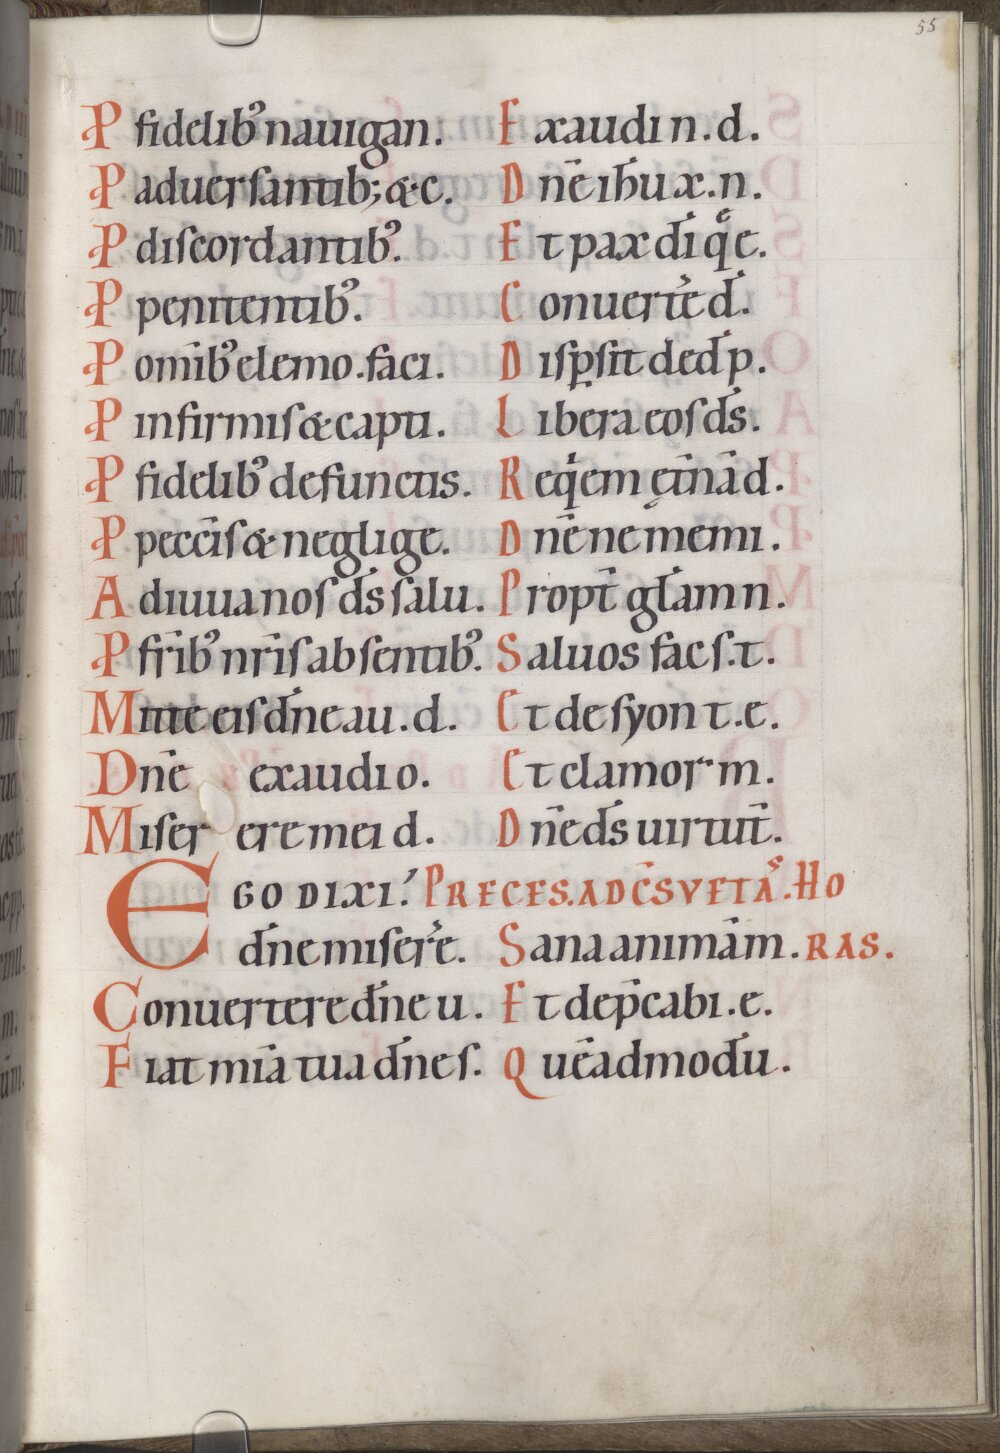 55
P fidelib᾽ nauigan. Exaudi n. d.
P aduersantib; & c. Dn̄e ih̄u x. n.
P discordantib᾽. Et pax d̄i q̊ e.
P penitentib᾽. Conuert̄e d̄.
P om̄ib᾽ elemo. faci. Disp̱sit ded̄ p.
P infirmis & capti. Libera eos d̄s.
P fidelib᾽ defunctis. Req̇em ęt̄nā d.
P pecc̄is & neglige. Dn̄e ne memi.
Adiuua nos d̄s salu. Propt̄ gl̄am n.
P fr̄ib᾽ nr̄is absentib᾽. Saluos fac s. t.
Mitte eis d̄ne au. d. Et de syon t. e.
Dn̄e exaudi o. Et clamor m.
Miserere mei d. Dn̄e d̄s uirtut̄.
EGO DIXI. PRECES. AD C̄SVETAS. HO
d̄ne miser̄e. Sana animām. RAS.
Conuertere d̄ne u. Et dep̄cabi. e.
Fiat mīa tua d̄ne s. Quēadmodū.